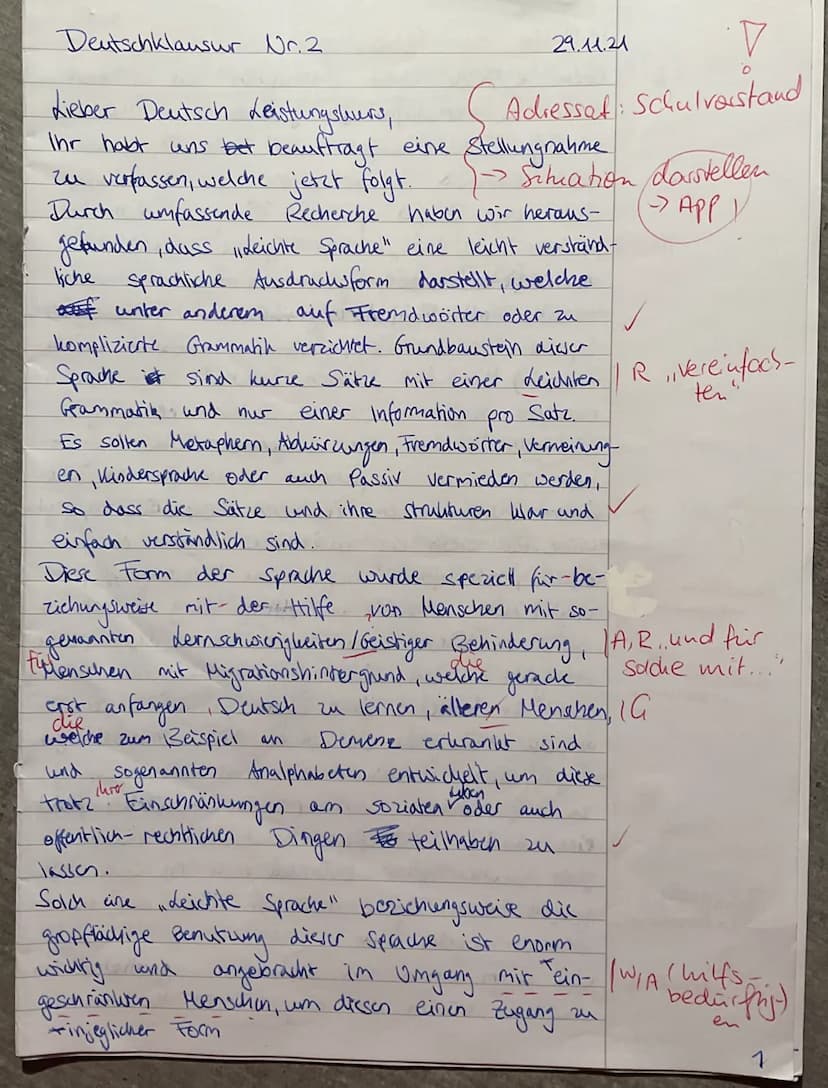 Deutschklausur Nr.2 29.11.21
Lieber Deutsch Leistungskurs, Adressat: Schulvorstand
Ihr habt uns beauftragt eine Stellungnahme
zu verfassen, welche jetzt folgt. → Situation darstellen
→ App!
Durch umfassende Recherche haben wir heraus-
gefunden, dass „Leichte Sprache" eine leicht verständ-
liche sprachliche Ausdrucksform darstellt, welche
unter anderem auf Fremdwörter oder zu ✓
komplizierte Grammatik verzichtet. Grundbaustein dieser
Sprache sind kurze Sätze mit einer Leichten | R „vereinfach-
ten"
Grammatik und nur einer Information pro Satz.
Es sollen Metaphern, Abkürzungen, Fremdwörter, Verneinung-
en, Kindersprache oder auch Passiv vermieden werden,
so dass die Sätze und ihre Strukturen klar und ✓
einfach verständlich sind.
Diese Form der Sprache wurde speziell für-be-
ziehungsweise mit- der Hilfe, von Menschen mit so-
genannten Lernschwierigkeiten/Geistiger Behinderung, | A, R „und für
solche mit..."
für Menschen mit Migrationshintergrund, welche die gerade
erst anfangen, Deutsch zu lernen, älteren Menschen, | G
die
welche zum Beispiel an Demenz erkrankt sind
und sogenannten Analphabeten entwickelt, um diese
trotz ihrer Einschränkungen am sozialen Leben oder auch
öffentlich-rechtlichen Dingen teilhaben zu ✓
lassen.
Solch eine „Leichte Sprache" beziehungsweise die
großflächige Benutzung dieser Sprache ist enorm
wichtig und angebracht im Umgang mit "ein- | W/A (hilfs-
bedürftig-)
en
geschränkten Menschen, um diesen einen Zugang zu
injeglicher Form
1